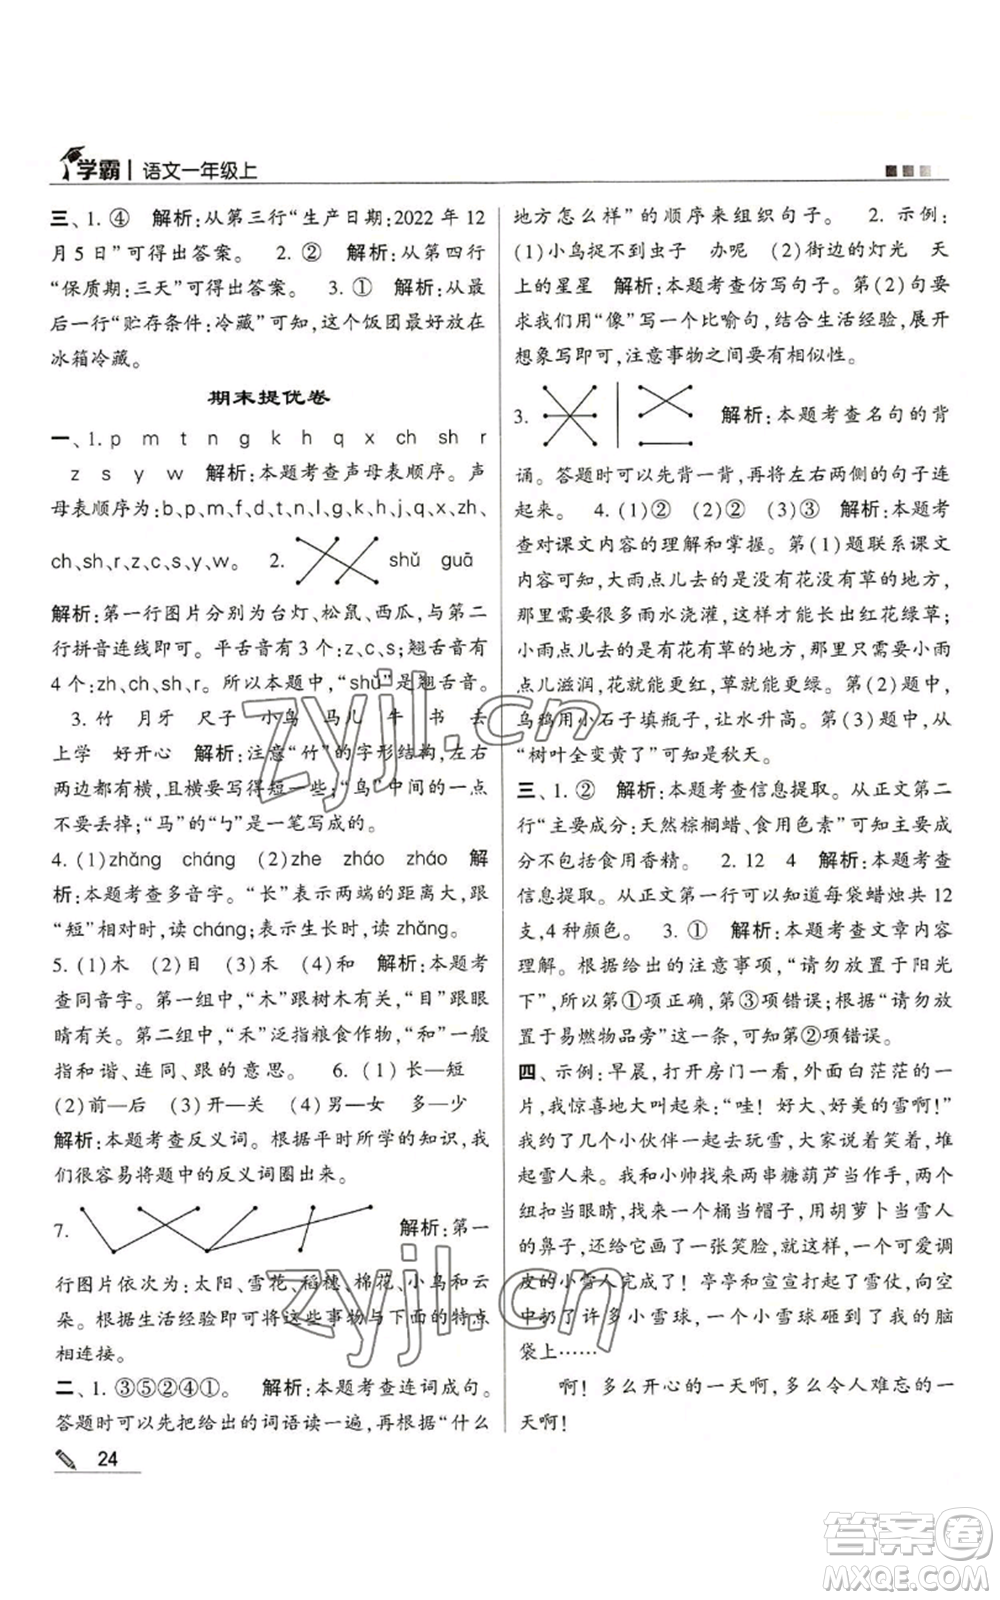 学霸 | 语文一年级上
三、1. ④ 解析:从第三行“生产日期:2022 年 12
月 5 日”可得出答案。 2. ② 解析:从第四行
“保质期:三天”可得出答案。 3. ① 解析:从最
后一行“贮存条件:冷藏”可知,这个饭团最好放在
冰箱冷藏。
期末提优卷
一、1. p m t n g k h q x ch sh r
z s y w 解析:本题考查声母表顺序。声
母表顺序为:b、p、m、f、d、t、n、l、g、k、h、j、q、x、zh、
ch、sh、r、z、c、s、y、w。 2. shǔ guā
解析:第一行图片分别为台灯、松鼠、西瓜,与第二
行拼音连线即可。平舌音有 3 个:z、c、s,翘舌音有
4 个:zh、ch、sh、r。所以本题中,“shǔ”是翘舌音。
3. 竹 月牙 尺子 小鸟 马儿 牛 书 去
上学 好开心 解析:注意“竹”的字形结构,左右
两边都有横,且横要写得短一些;“鸟”中间的一点
不要丢掉;“马”的“ㄅ”是一笔写成的。
4. (1)zhǎng cháng (2)zhe zháo zháo 解
析:本题考查多音字。“长”表示两端的距离大,跟
“短”相对时,读 cháng;表示生长时,读 zhǎng。
5. (1)木 (2)目 (3)禾 (4)和 解析:本题考
查同音字。第一组中,“木”跟树木有关,“目”跟眼
睛有关。第二组中,“禾”泛指粮食作物,“和”一般
指和谐、连同、跟的意思。 6. (1)长—短
(2)前—后 (3)开—关 (4)男—女 多—少
解析:本题考查反义词。根据平时所学的知识,我
们很容易将题中的反义词圈出来。
7. 解析:第一
行图片依次为:太阳、雪花、稻穗、棉花、小鸟和云
朵。结合生活经验即可将这些事物与下面的特点
相连接。
二、1. ③⑤②④①。 解析:本题考查连词成句。
答题时可以先把给出的词语读一遍,再根据“什么
地方怎么样”的顺序来组织句子。 2. 示例:
(1)小鸟捉不到虫子 办呢 (2)街边的灯光 天
上的星星 解析:本题考查仿写句子。第(2)句要
求我们用“像”写一个比喻句,结合生活经验,展开
想象写即可,注意事物之间要有相似性。
3. 解析:本题考查名句的背
诵。答题时可以先背一背,再将左右两侧的句子连
起来。 4. (1)② (2)② (3)③ 解析:本题考
查对课文内容的理解和掌握。第(1)题联系课文
内容可知,大雨点儿去的是没有花没有草的地方,
那里需要很多雨水浇灌,这样才能长出红花绿草;
小雨点儿去的是有花有草的地方,那里只需要小雨
点儿滋润,花就能更红,草就能更绿。第(2)题中,
乌鸦用小石子填瓶子,让水升高。第(3)题中,从
“树叶全变黄了”可知是秋天。
三、1. ② 解析:本题考查信息提取。从正文第二
行“主要成分:天然棕榈蜡、食用色素”可知,主要
成分不包括食用香精。 2. 12 4 解析:本题考查
信息提取。从正文第一行可以知道每袋蜡烛共 12
支,4 种颜色。 3. ① 解析:本题考查文章内容
理解。根据给出的注意事项,“请勿放置于阳光
下”,所以第①项正确,第③项错误;根据“请勿放
置于易燃物品旁”这一条,可知第②项错误。
四、示例:早晨,打开房门一看,外面白茫茫的一
片,我惊喜地大叫起来:“哇!好大、好美的雪啊!”
我约了几个小伙伴一起去玩雪,大家说着笑着,堆
起雪人来。我和小帅找来两串糖葫芦当作手,两个
纽扣当眼睛,找来一个水桶当帽子,用胡萝卜当雪人
的鼻子,还给它画了一张笑脸,就这样,一个可爱调
皮的小雪人完成了!亭亭和宣宣打起了雪仗,向空
中扔了许多小雪球,一个小雪球砸到了我的脑
袋上……
啊!多么开心的一天啊,多么令人难忘的一
天啊!
24
zyjl.cn
zyjl.cn
答案卷
MXQE.COM